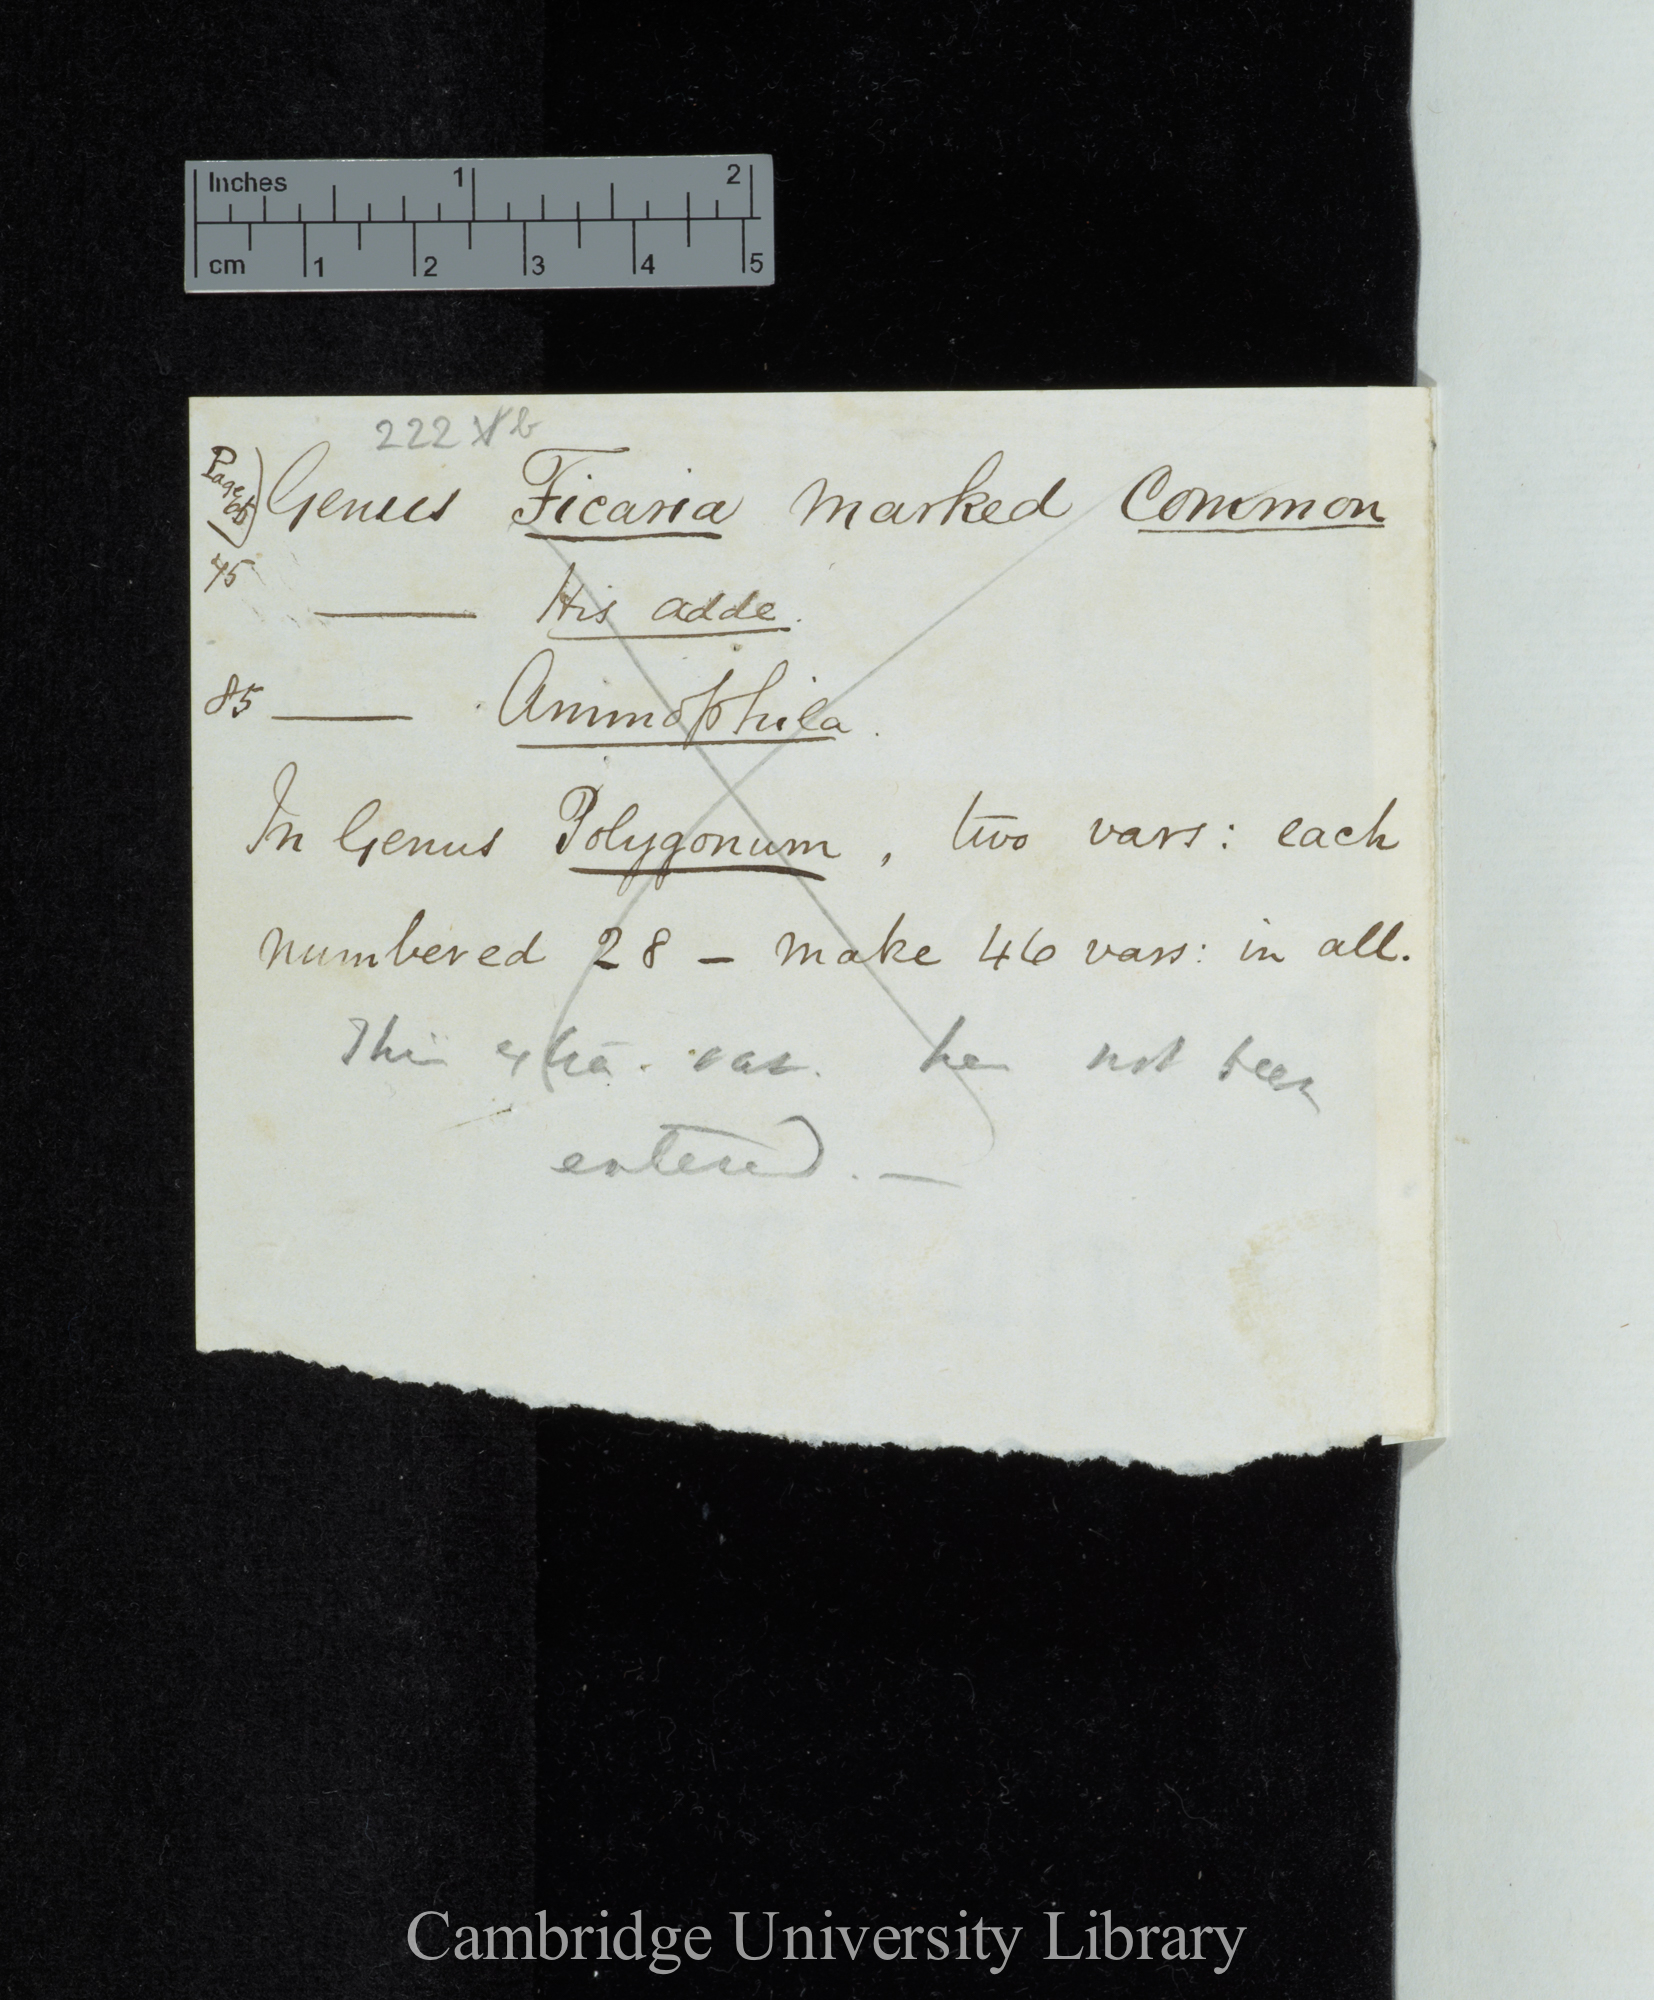 Inches 1 2
cm 1 2 3 4 5
222 b
Page Genus Ficaria marked Common
45 —— His adde.
85 —— Ammophila.
In Genus Polygonum, two vars: each
numbered 28 — make 46 vars: in all.
This extra. var. has not been
entered. —
Cambridge University Library